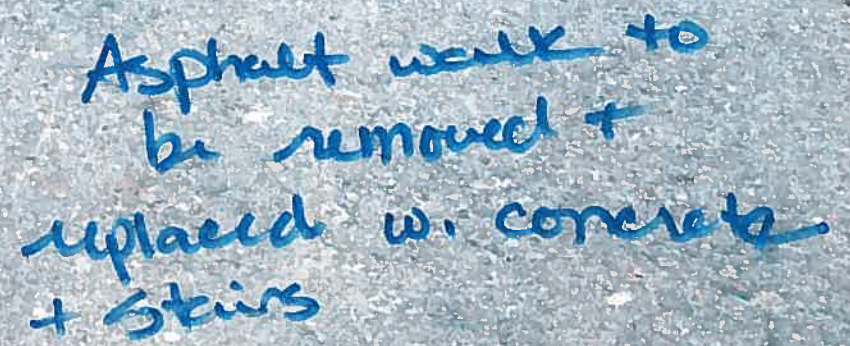 Asphalt walk to
be removed +
replaced w. concrete
+ stairs